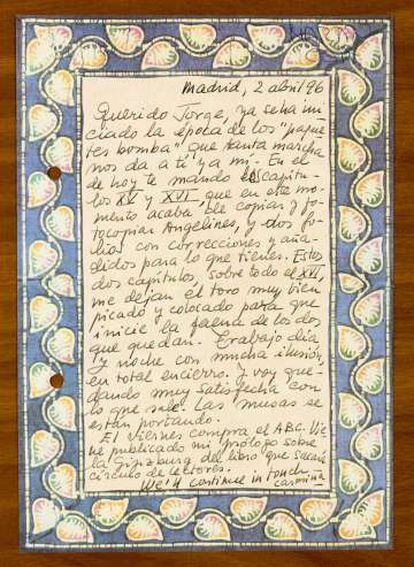 Madrid, 2 abril 96
Querido Jorge, ya se ha ini-
ciado la época de los "paque-
tes bomba" que tanta marcha
nos da a ti y a mí. En el
de hoy te mando los capítu-
los XV y XVI, que en este mo-
mento acaba de copiar y fo-
tocopiar Angelines, y dos fo-
lios con correcciones y aña-
didos para lo que tienes. Estos
dos capítulos, sobre todo el XVI,
me dejan el toro muy bien
picado y colocado para que
inicie la faena de los dos
que quedan. Trabajo día
y noche con mucha ilusión,
en total encierro. Y voy que-
dando muy satisfecha con
lo que sale. Las musas se
están portando.
El viernes compra el ABC. Vie-
ne publicado mi prólogo sobre
la Ginzburg del libro que sacará
círculo de lectores.
We'll continue in touch
Carmiña